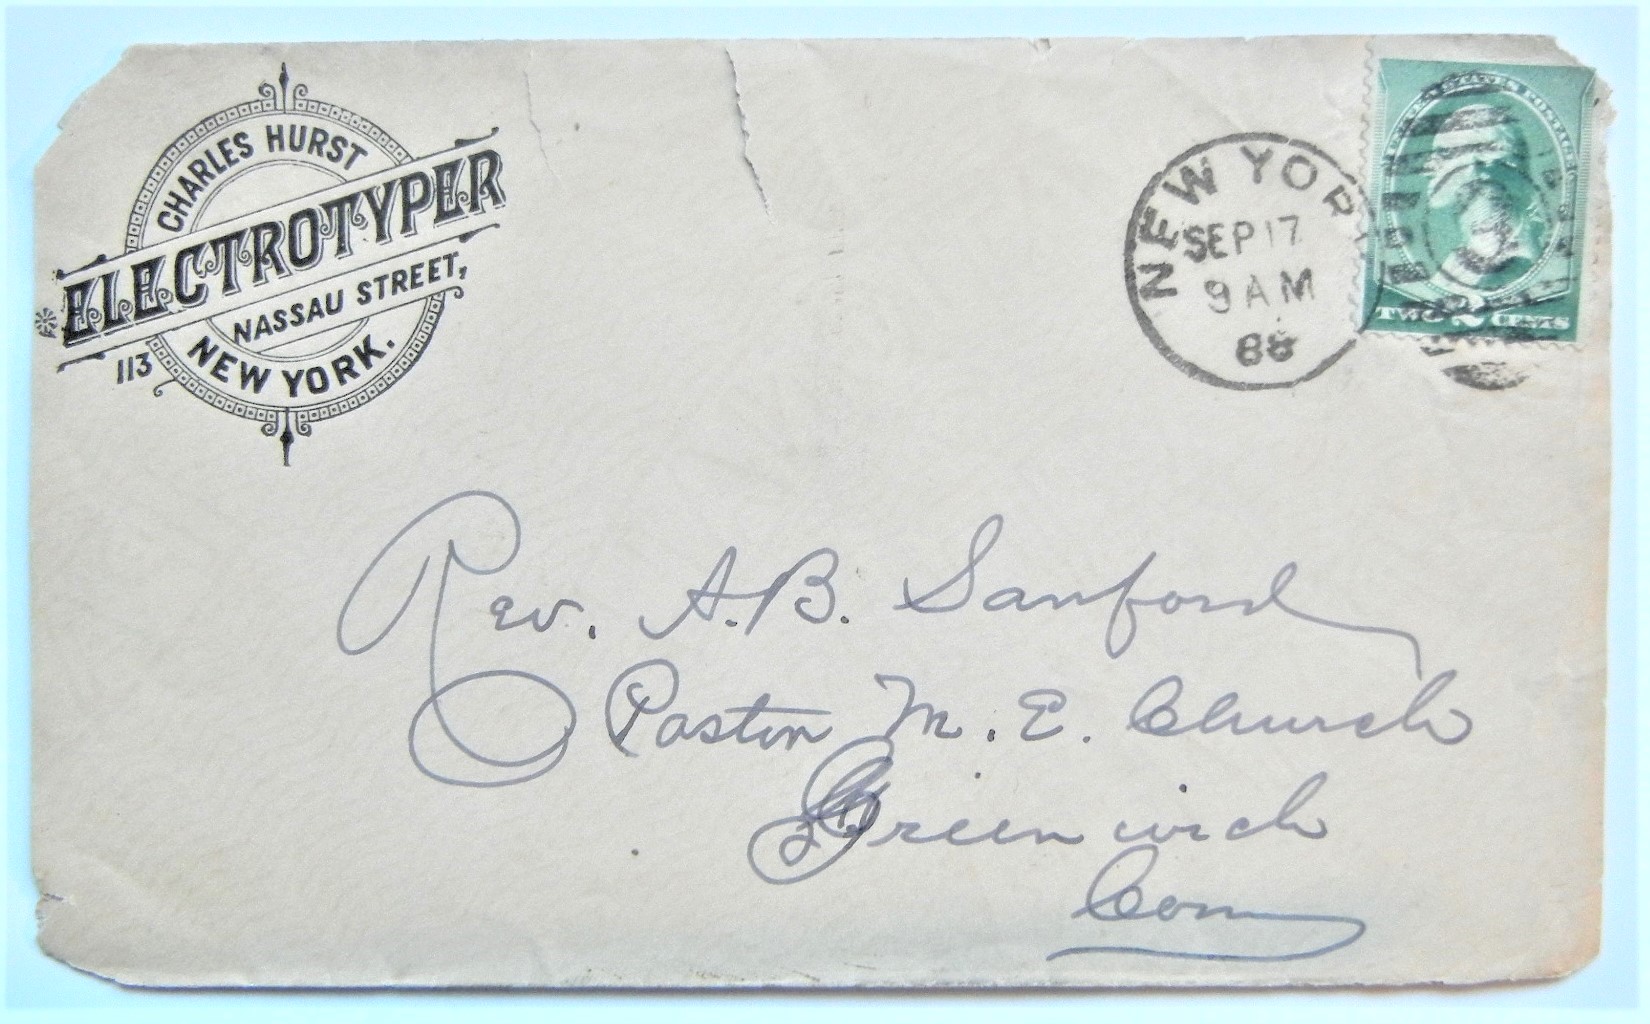 CHARLES HURST
ELECTROTYPER
113 NASSAU STREET,
NEW YORK.
NEW YORK
SEP 17
9 AM
88
UNITED STATES POSTAGE
TWO 2 CENTS
Rev. A. B. Sanford
Pastor M. E. Church
Greenwich
Conn